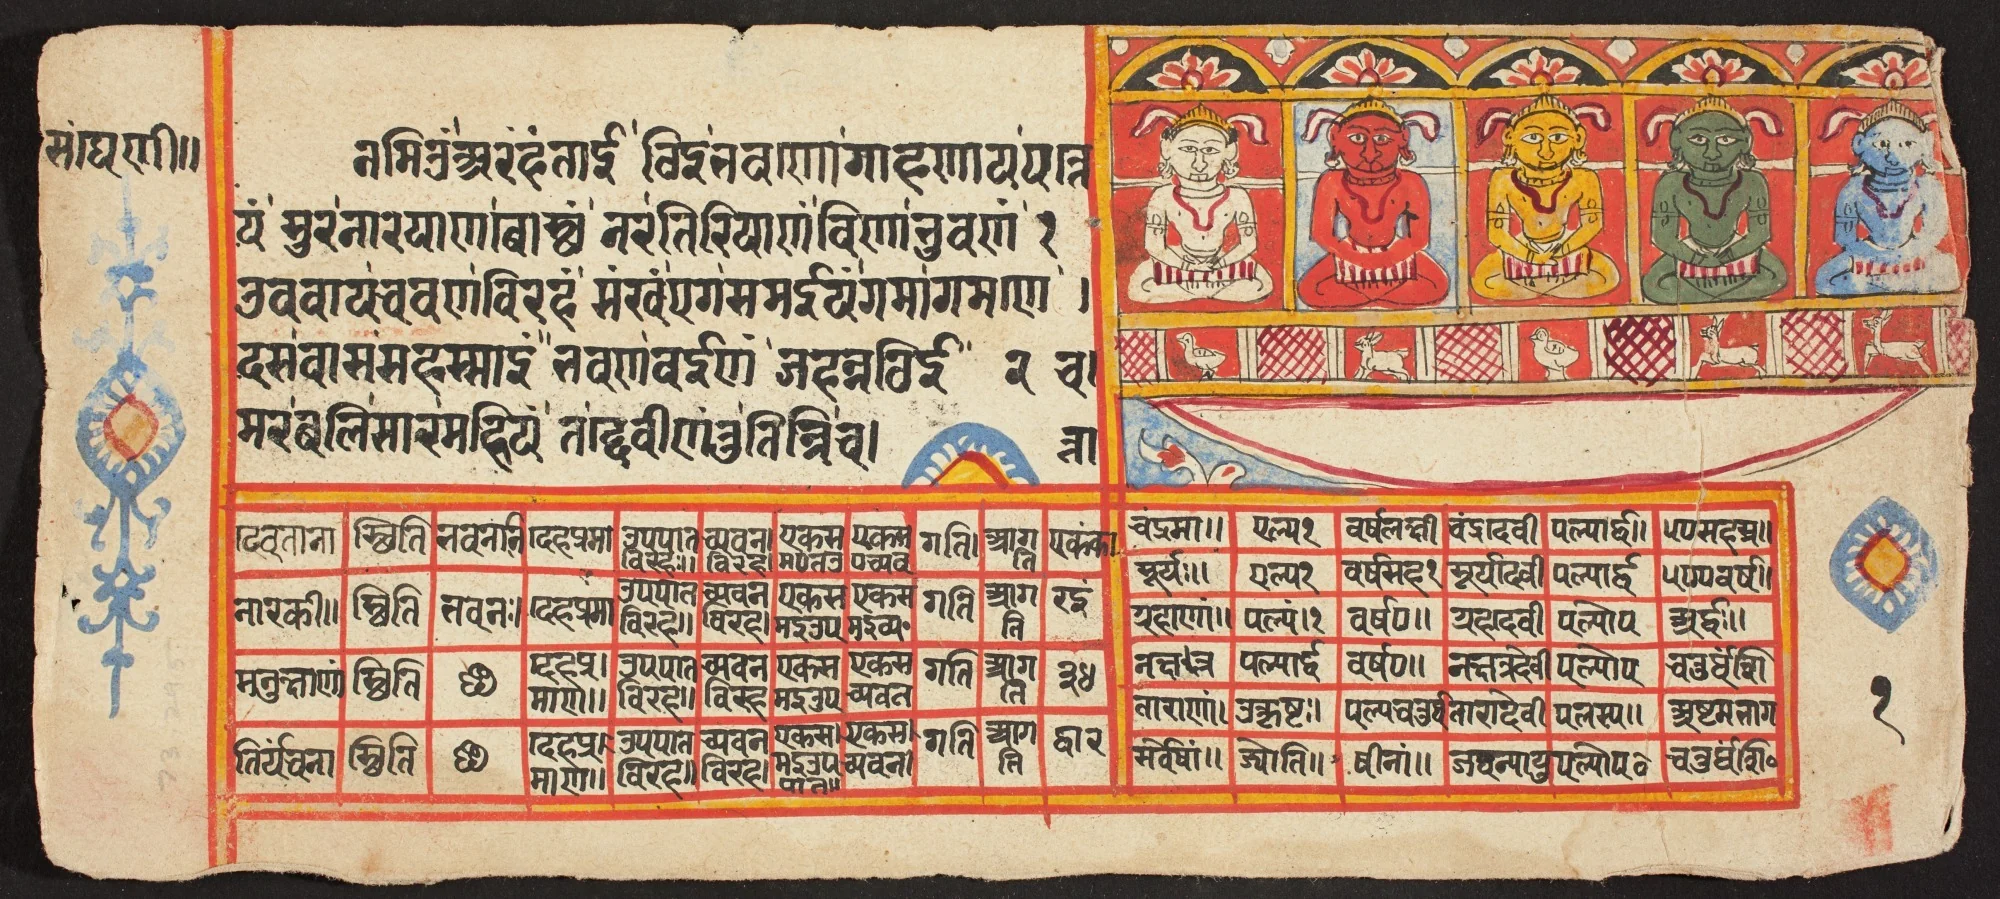 संघयणी॥
नमिउं अरहंताई ठिइभवणोगाहणा य पत्ते
यं सुरनारयाण वोच्छं नरतिरियाणं विणा भवणं १
उववायचवणविरहं संखं एगसमईयं गमागमणे ।
दसवाससहस्साइं भवणवईणं जहन्नठिई २ च
मरबलिसारमहियं तद्देवीणं तु तिन्नि च। त्ता
देवताना स्थिति भवनंति देहप्रमा उपपात विरहः॥ च्यवन। विरह। एकस मएनउ एकसम पच्यव गति। आग ति एकंका
नारकी॥ स्थिति भवनः। देहप्रमा उपपात विरह॥ च्यवन विरह। एकस मइउप एकसम मइच्य॰ गति आग ति
मनुष्याणां स्थिति ० देहप्र। माणं॥ उपपात विरह॥ च्यवन विरह एकसम मइउप एकसम च्यवन गति आग ति ३४
तिर्यंचना स्थिति ० देहप्र। माणं॥ उपपात विरह॥ च्यवन विरह। एकसम। मइउप पात॥ एकसम। च्यवन। गति आग ति द्वार
चंद्रमा॥ पल्य१ वर्षलक्षी चंद्रादेवी पल्यार्द्ध॥ ५०सहस्र॥
सूर्यः॥ पल्य१ वर्षसह१ सूर्यादेवी पल्यार्द्ध ५००वर्ष॥
ग्रहाणां॥ पल्यं।१ वर्ष०॥ ग्रहादेवी पल्योप अर्द्धः॥
नक्षत्र पल्यार्द्ध वर्ष०॥ नक्षत्रदेवी पल्योप चतुर्थांशि
ताराणां। उत्कृष्टः। पल्यचतुर्थ तारादेवी पलस्य॥ अष्टमभाग
सर्वेषां॥ ज्योति॥ षीनां॥ जघन्यायु पल्योप॰ चतुर्थांशि॰
१